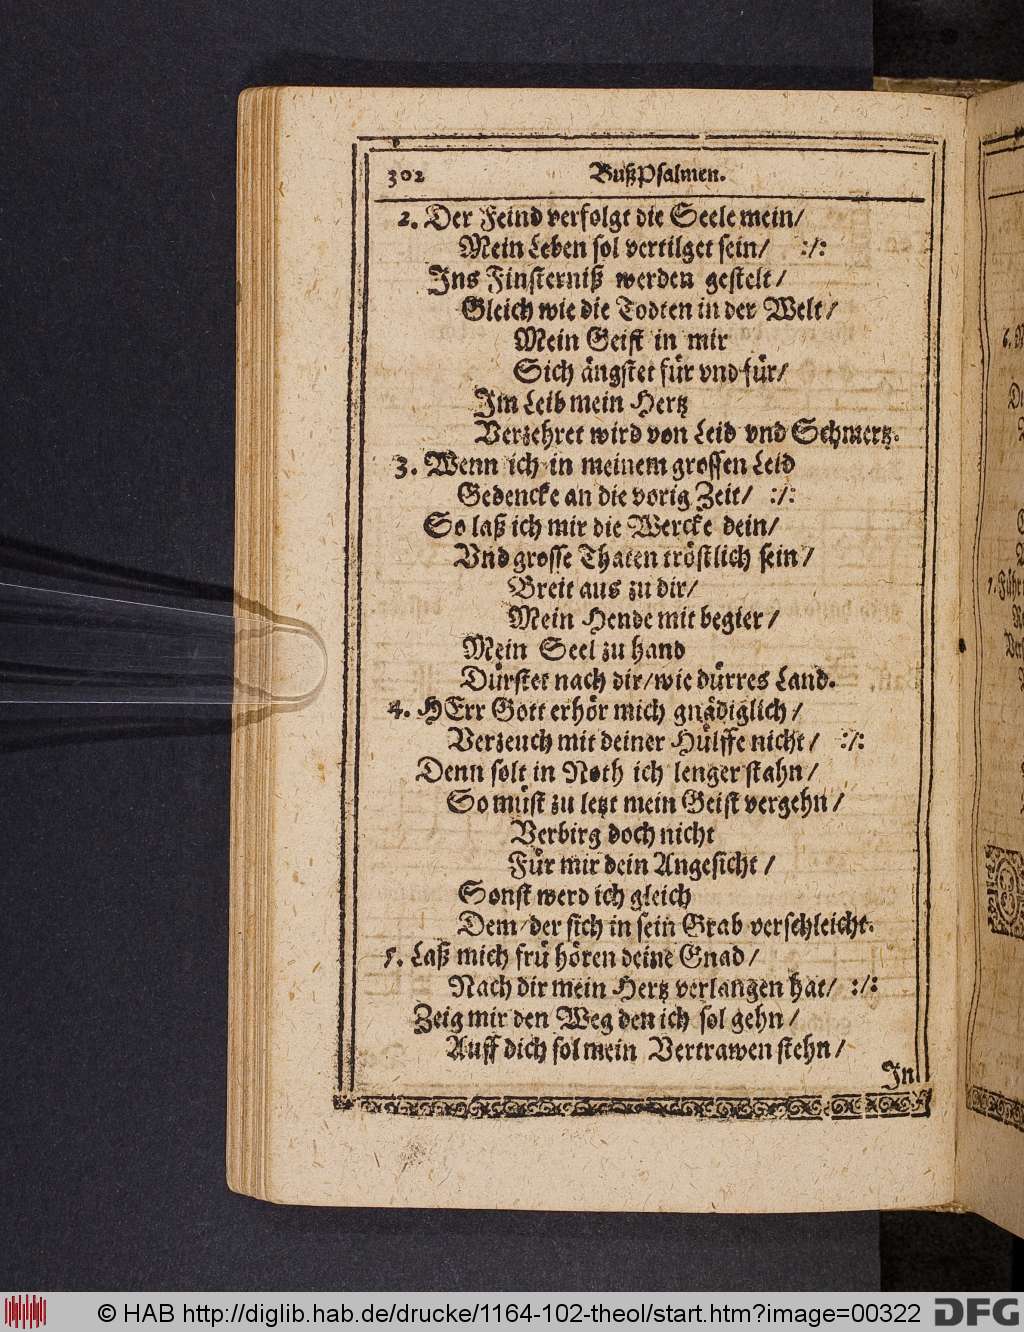 302 BußPsalmen.
2. Der Feind verfolgt die Seele mein/
Mein Leben sol vertilget sein/ :/:
Ins Finsterniß werden gestelt/
Gleich wie die Todten in der Welt/
Mein Geist in mir
Sich ängstet für vnd für/
Im Leib mein Hertz
Verzehret wird von Leid vnd Schmertz.
3. Wenn ich in meinem grossen Leid
Gedencke an die vorig Zeit/ :/:
So laß ich mir die Wercke dein/
Vnd grosse Thaten tröstlich sein/
Breit aus zu dir/
Mein Hende mit begier/
Mein Seel zu hand
Dürstet nach dir/wie dürres Land.
4. HErr Gott erhör mich gnädiglich/
Verzeuch mit deiner Hülffe nicht/ :/:
Denn solt in Noth ich lenger stahn/
So müst zu letzt mein Geist vergehn/
Verbirg doch nicht
Für mir dein Angesicht/
Sonst werd ich gleich
Dem/der sich in sein Grab verschleicht.
5. Laß mich frü hören deine Gnad/
Nach dir mein Hertz verlangen hat/ :/:
Zeig mir den Weg den ich sol gehn/
Auff dich sol mein Vertrawen stehn/
In
© HAB http://diglib.hab.de/drucke/1164-102-theol/start.htm?image=00322 DFG